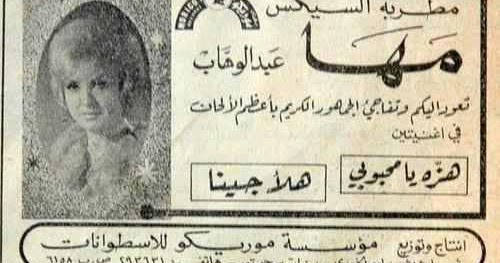 مطربة السيكس
مها عبد الوهاب
تعود اليكم وتفاجئ الجمهور الكريم بأعظم الألحان
في اغنيتين
هزّه يا محبوبي
هلأ جينا
انتاج وتوزيع مؤسسة موريكو للاسطوانات
٢٩٣٦٣١ ص.ب ٦١٥٨